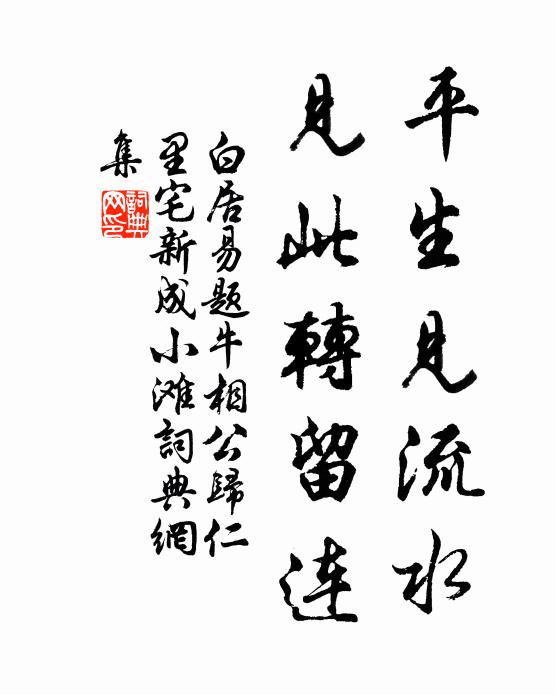 平生見流水
見此轉留連
白居易題牛相公歸仁
里宅新成小滩詞典網
集
詞典
网印